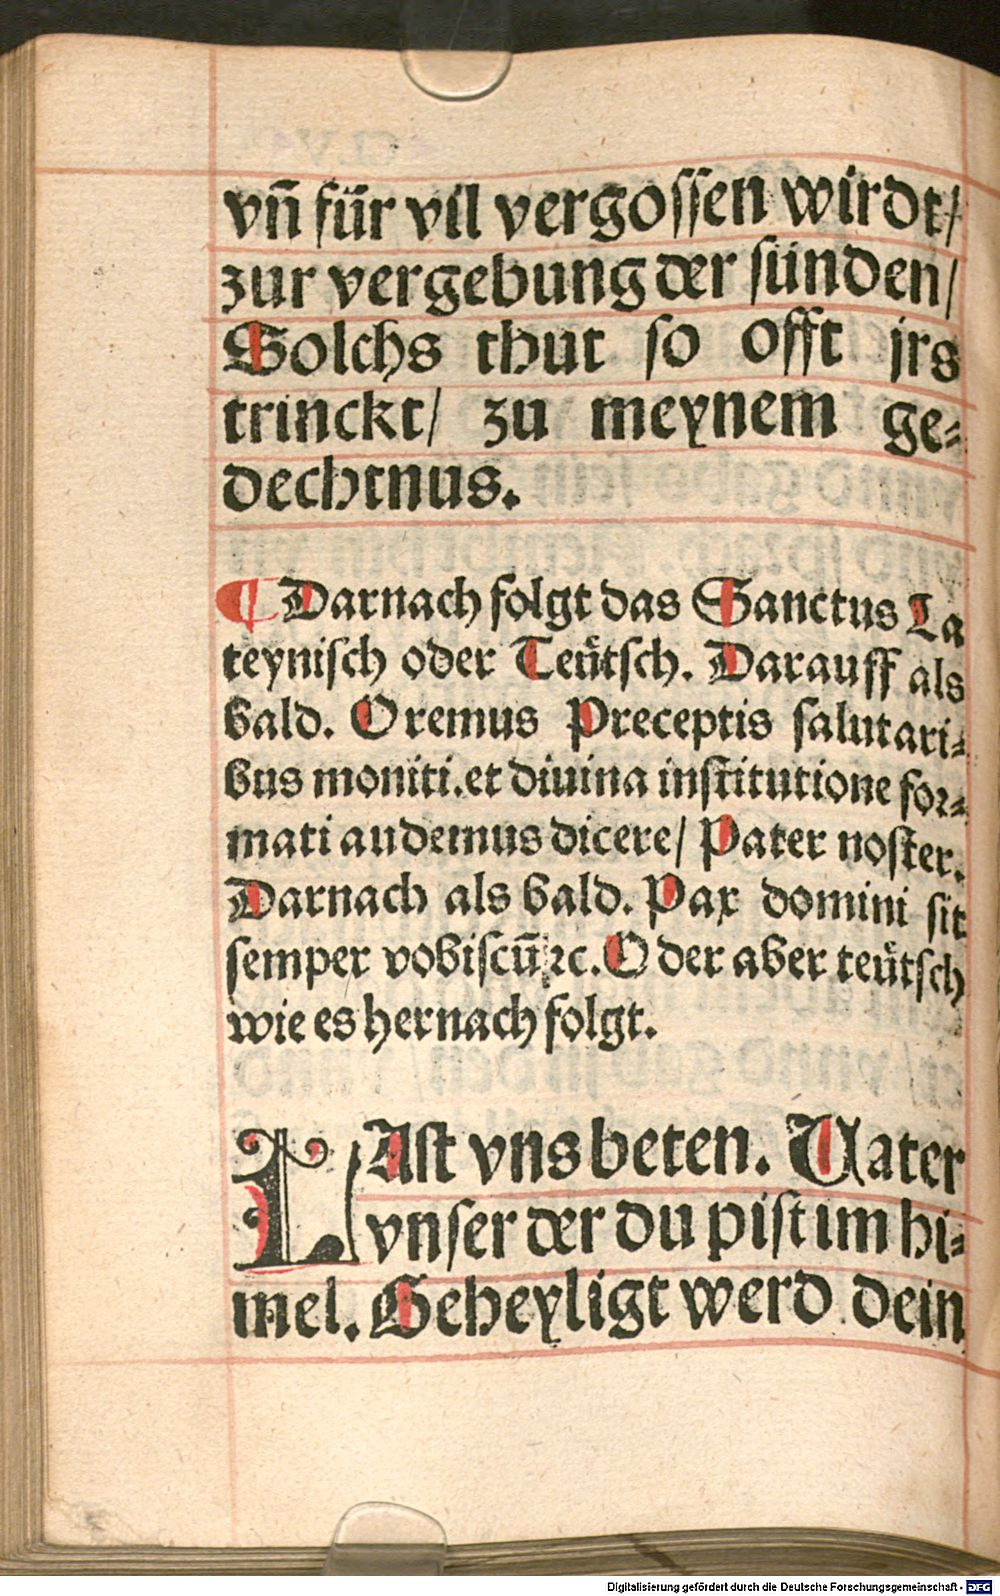 vñ für vil vergossen wirdt/
zur vergebung der sünden/
Solchs thut so offt jrs
trinckt/ zu meynem ge⸗
dechtnus.
¶ Darnach folgt das Sanctus La
teynisch oder Teütsch. Darauff als
bald. Oremus Preceptis salutari⸗
bus moniti. et diuina institutione for⸗
mati audemus dicere/ Pater noster.
Darnach als bald. Pax domini sit
semper vobiscū ꝛc. Oder aber teütsch
wie es hernach folgt.
LAst vns beten. Vater
vnser der du pist im hi⸗
mel. Geheyligt werd dein
Digitalisierung gefördert durch die Deutsche Forschungsgemeinschaft - DFG